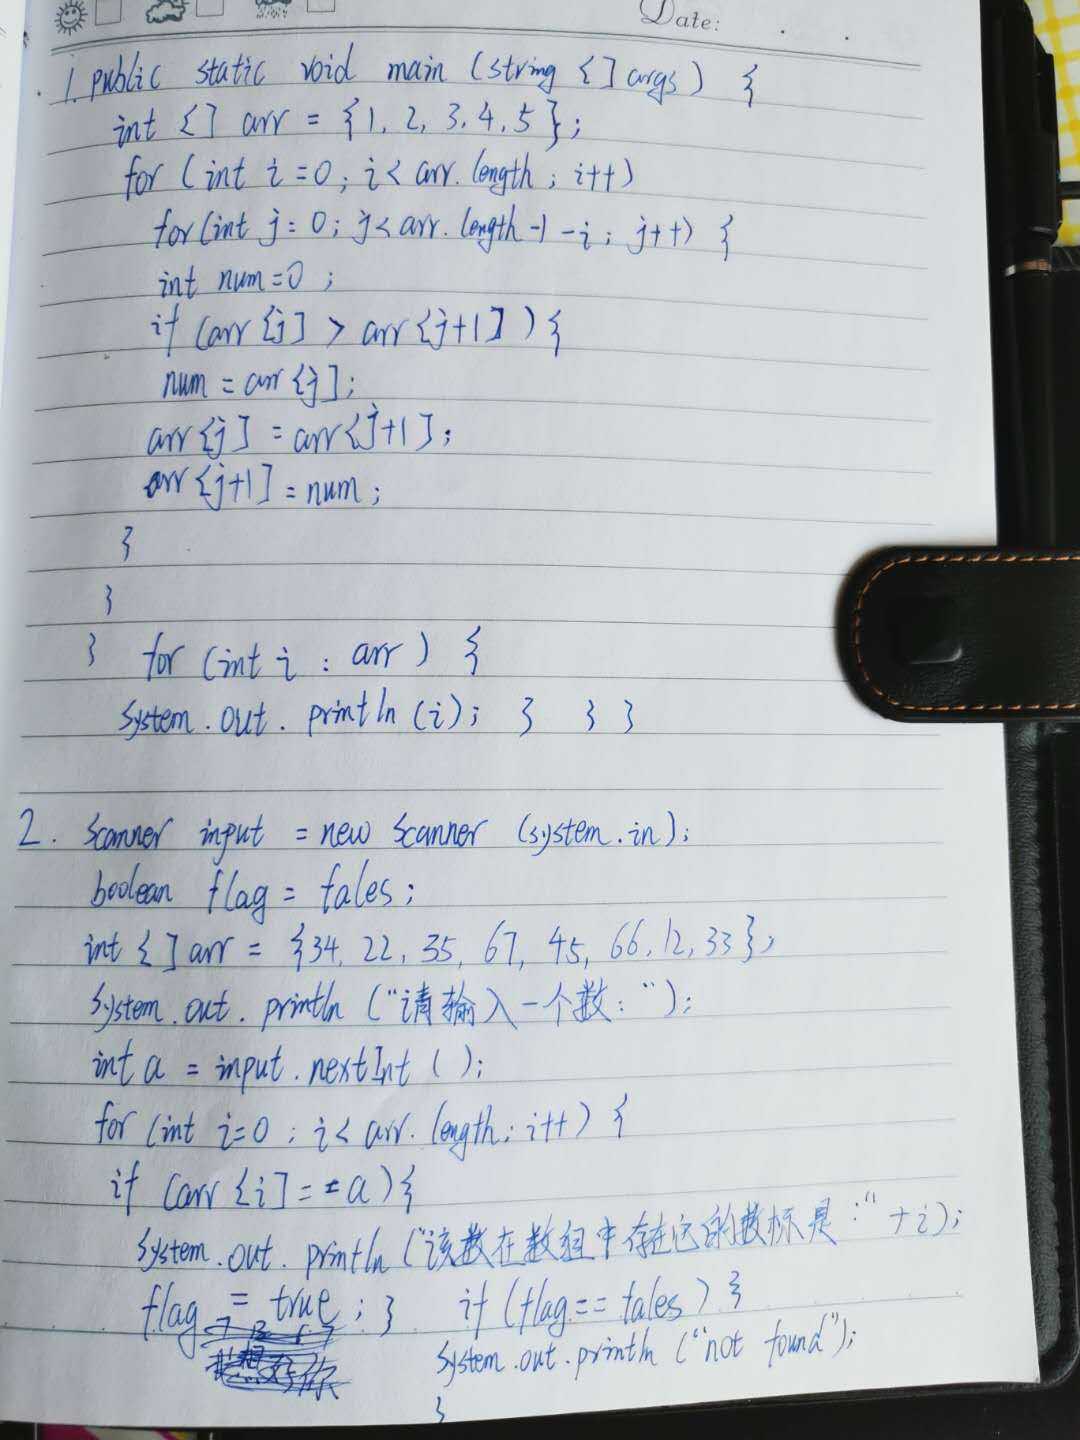 Date:
1. public static void main (string {] args) {
int {] arr = {1, 2, 3, 4, 5};
for (int i=0; i< arr. length; i++)
for (int j=0; j< arr. length -1 -i; j++) {
int num=0;
if (arr {j] > arr {j+1]) {
num = arr {j];
arr {j] = arr {j+1];
arr {j+1] = num;
}
}
} for (int i : arr) {
system. out. println (i); } } }
2. scanner input = new scanner (system. in);
boolean flag = tales;
int {] arr = {34, 22, 35, 67, 45, 66, 12, 33};
system. out. println ("请输入一个数:");
int a = input. nextInt ();
for (int i=0; i< arr. length; i++) {
if (arr {i] == a) {
system. out. println ("该数在数组中存在它的数标是:" + i);
flag = true; } if (flag == tales) }
system. out. println ("not found");
}